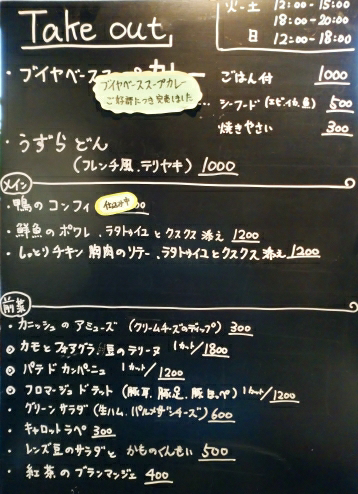 Take out
火-土 12:00-15:00
18:00-20:00
日 12:00-18:00
・ブイヤベーススープカレー ごはん付 1000
ブイヤベーススープカレー
ご好評につき完売しました
シーフード(エビ、イカ、魚) 500
焼きやさい 300
・うずらどん
(フレンチ風、テリヤキ) 1000
メイン
・鴨のコンフィ 仕込み中 00
・鮮魚のポワレ、ラタトゥイユとクスクス添え 1200
・しっとりチキン胸肉のソテー、ラタトゥイユとクスクス添え 1200
前菜
・カニッシュのアミューズ(クリームチーズのディップ) 300
◎カモとフォアグラ、豆のテリーヌ 1カット/1800
◎パテドカンパーニュ 1カット/1200
◎フロマージュドテット(豚耳、豚足、豚ほっぺ) 1カット/1200
・グリーンサラダ(生ハム、パルメザンチーズ) 600
・キャロットラペ 300
・レンズ豆のサラダとかものくんせい 500
・紅茶のブランマンジェ 400